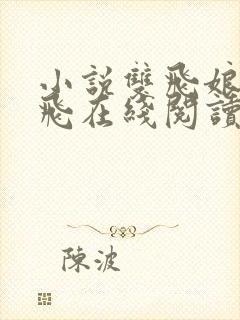 小说雙飛娘
飛在綫閱讀
陳波